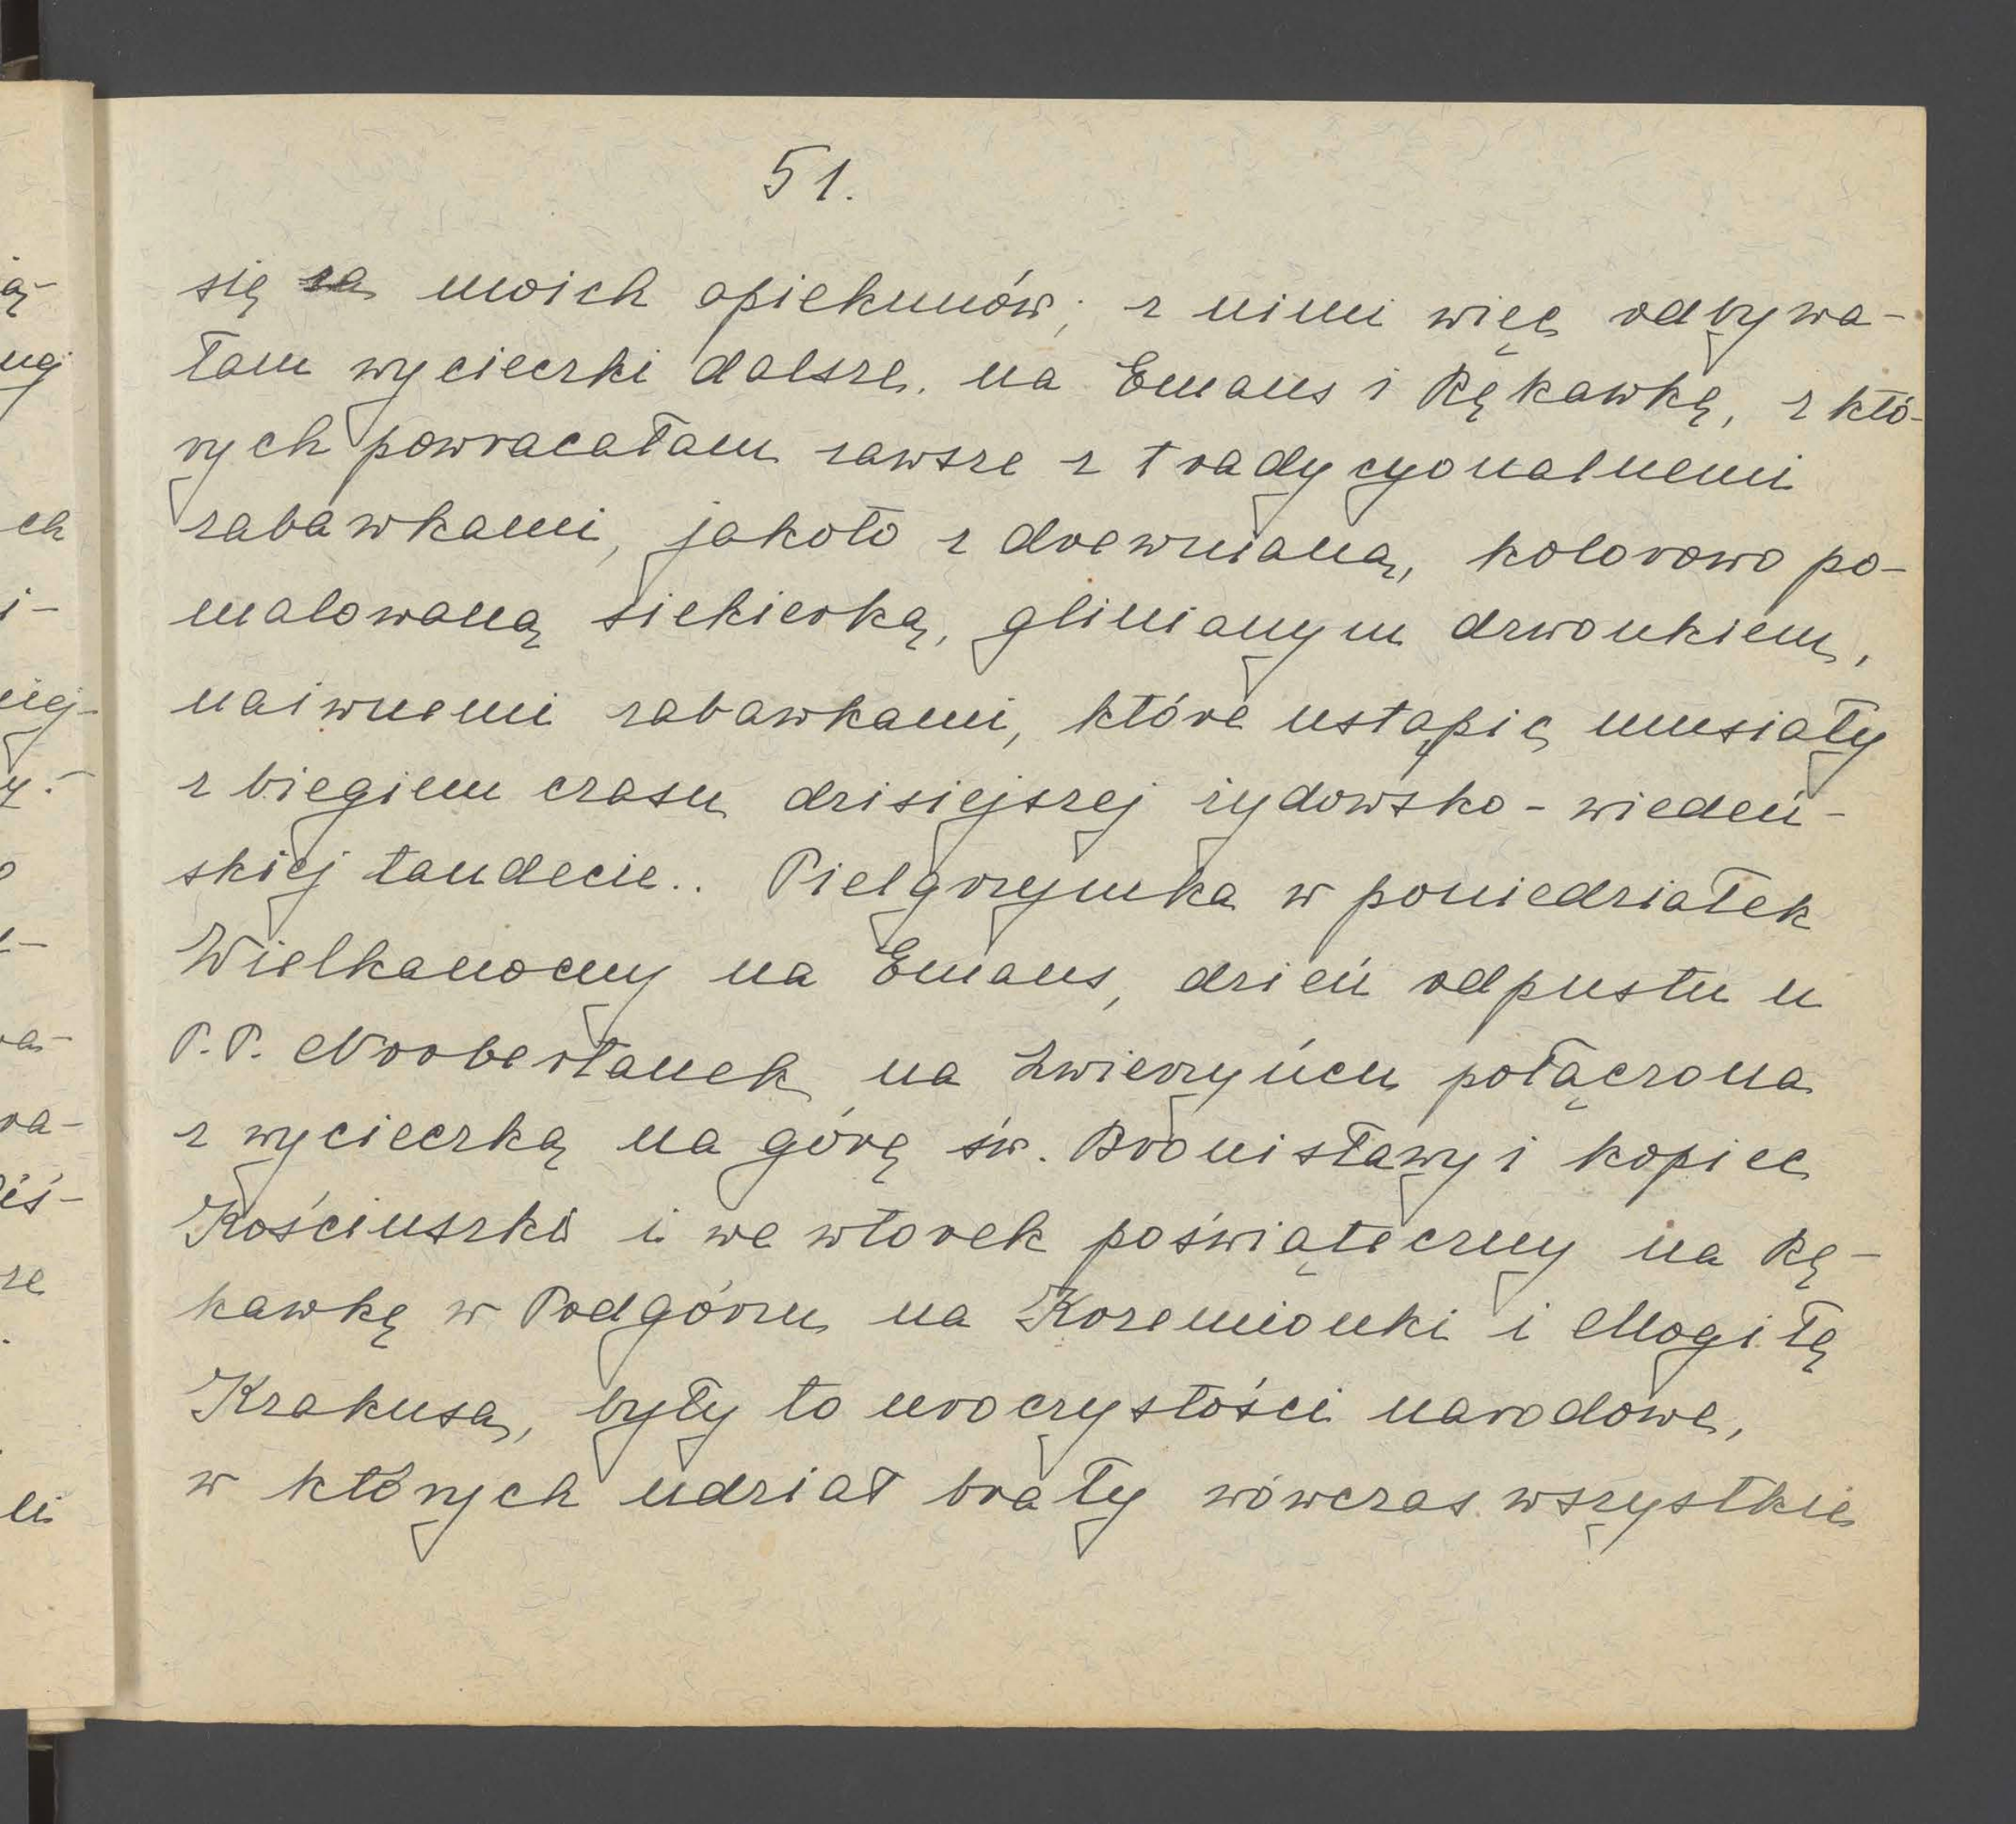 51.
się za moich opiekunów; z nimi więc odbywa-
łam wycieczki dalsze, na Emaus i Rękawkę, z któ-
rych powracałam zawsze z tradycyonalnemi
zabawkami, jakoto z drewnianą, kolorowo po-
malowaną siekierką, glinianym dzwonkiem,
naiwnemi zabawkami, które ustąpić musiały
z biegiem czasu dzisiejszej żydowsko-wiedeń-
skiej tandecie.. Pielgrzymka w poniedziałek
Wielkanocny na Emaus, dzień odpustu u
P.P. Norbertanek na Zwierzyńcu połączona
z wycieczką na górę św. Bronisławy i kopiec
Kościuszki i we wtorek poświąteczny na Rę-
kawkę w Podgórzu na Krzemionki i Mogiłę
Krakusa, były to uroczystości narodowe,
w których udział brały wówczas wszystkie